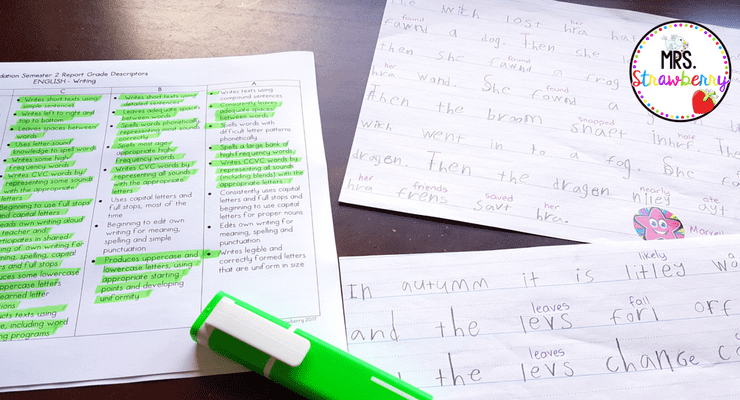 dation Semester 2 Report Grade Descriptors
ENGLISH - Writing
C
Writes short texts using
simple sentences
Writes left to right and
top to bottom
Leaves spaces between
words
Uses letter sound
knowledge to spell words
Writes some high
frequency words
Writes CVC words by
representing some sounds
with the appropriate
letters
Beginning to use full stops
and capital letters
eads own writing aloud
teacher and
articipates in shared
ing of own writing for
ning, spelling, capital
rs and full stops
uces some lowercase
ppercase letters
learned letter
ions
ucts texts using
re, including word
ng programs
B
Writes short texts using
detailed sentences
Leaves adequate spaces
between words
Spells words phonetically,
representing most sounds
correctly
Spells most age
appropriate high
frequency words
Writes CVC words by
representing all sounds
with the appropriate
letters
Uses capital letters and
full stops, most of the
time
Beginning to edit own
writing for meaning,
spelling and simple
punctuation
Produces uppercase and
lowercase letters, using
appropriate starting
points and developing
uniformity
A
Writes texts using
compound sentences
Consistently leaves
adequate spaces
between words
Spells words with
difficult letter patterns
phonetically
Spells a large bank of
high frequency words
Writes CCVC words by
representing all sounds
(including blends) with the
appropriate letters
Consistently uses capital
letters and full stops and
beginning to use capital
letters for proper nouns
Edits own writing for
meaning, spelling and
punctuation
Writes legible and
correctly formed letters
that are uniform in size
The wich lost hra hat
found her
fawnd a dog. Then she
found
then she fawnd a frog
her found
hra wand. She fawnd a
snapped half
Then the broom snaet inhrf. The
wich went in to a fog. She
nearly ate
dragen. Then the dragen nirley ayt
her friends saved her
hra frens savt hra.
MRS.
Strawberry
likely
In autumm it is litley
leaves fall
and the levs forl off
leaves
the levs change